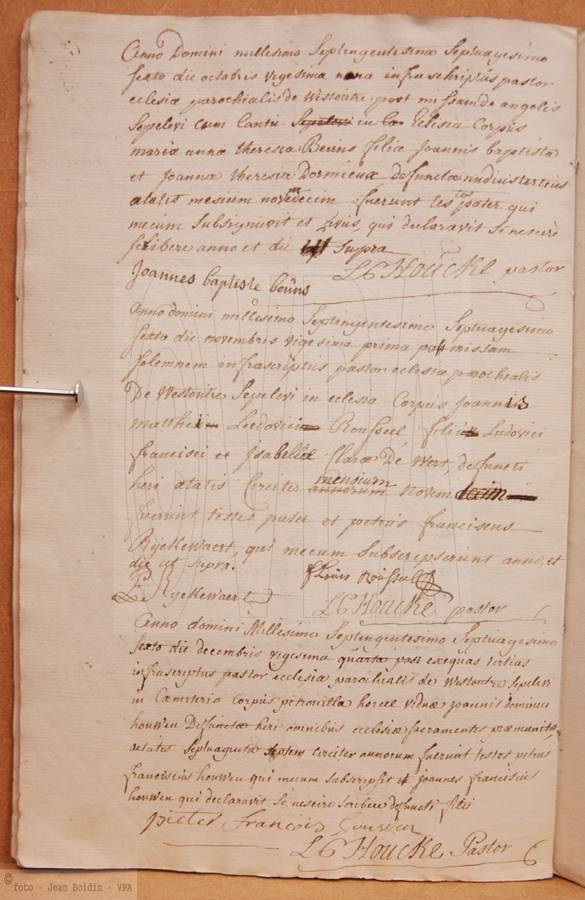 Anno Domini millesimo Septingentesimo Septuagesimo
sexto die octobris vigesima nona infraschriptus pastor
eclesiæ parochialis de Westoutre post missam de angelis
Sepelevi cum Cantu in Eclesia Corpus
mariæ annæ theresiæ Beuns filiæ joannis baptistæ
et joannæ theresiæ Dormieux defunctæ nudiustertius
ætatis mesium novemdecim fuerunt testes pater qui
mecum Subsignavit et qui declaravit Se nescire
scribere anno et die ut Supra
L C Houcke pastor
Joannes baptiste beuns
Anno domini millesimo Septingentesimo Septuagesimo
sexto die novembris vigesima prima post missam
solemnem infrascriptus pastor eclesiæ parochialis
De Westoutre Sepelevi in eclesia Corpus joannis
matthei Ludovici Roussel filii Ludovici
francisci et Isabellæ Claræ De Wert, defuncti
heri ætatis Circiter annorum mensium novem
fuerunt testes pater et petrus franciscus
Ryckewaert, qui mecum Subscripserunt anno, et
die ut Supra.
f Louis Roussel
P. Ryckewaert
L C Houcke pastor
Anno domini Millesimo Septingentesimo Septuagesimo
sexto die decembris vigesima quarta post exequias tertias
infrascriptus pastor ecclesiæ parochialis de Westoutre Sepelevi
in Cæmiterio Corpus petronillæ viduæ joannis dominici
houwen Defunctæ heri omnibus ecclesiæ sacramentis præmunitæ
ætatis Septuaginta septem Circiter annorum fuerunt testes petrus
franciscus houwen qui mecum Subscripsit et joannes franciscus
houwen qui declaravit Se nescire Scribere defuncti filii
pieter François
L C Houcke Pastor
© foto - Jean Boidin - VPA